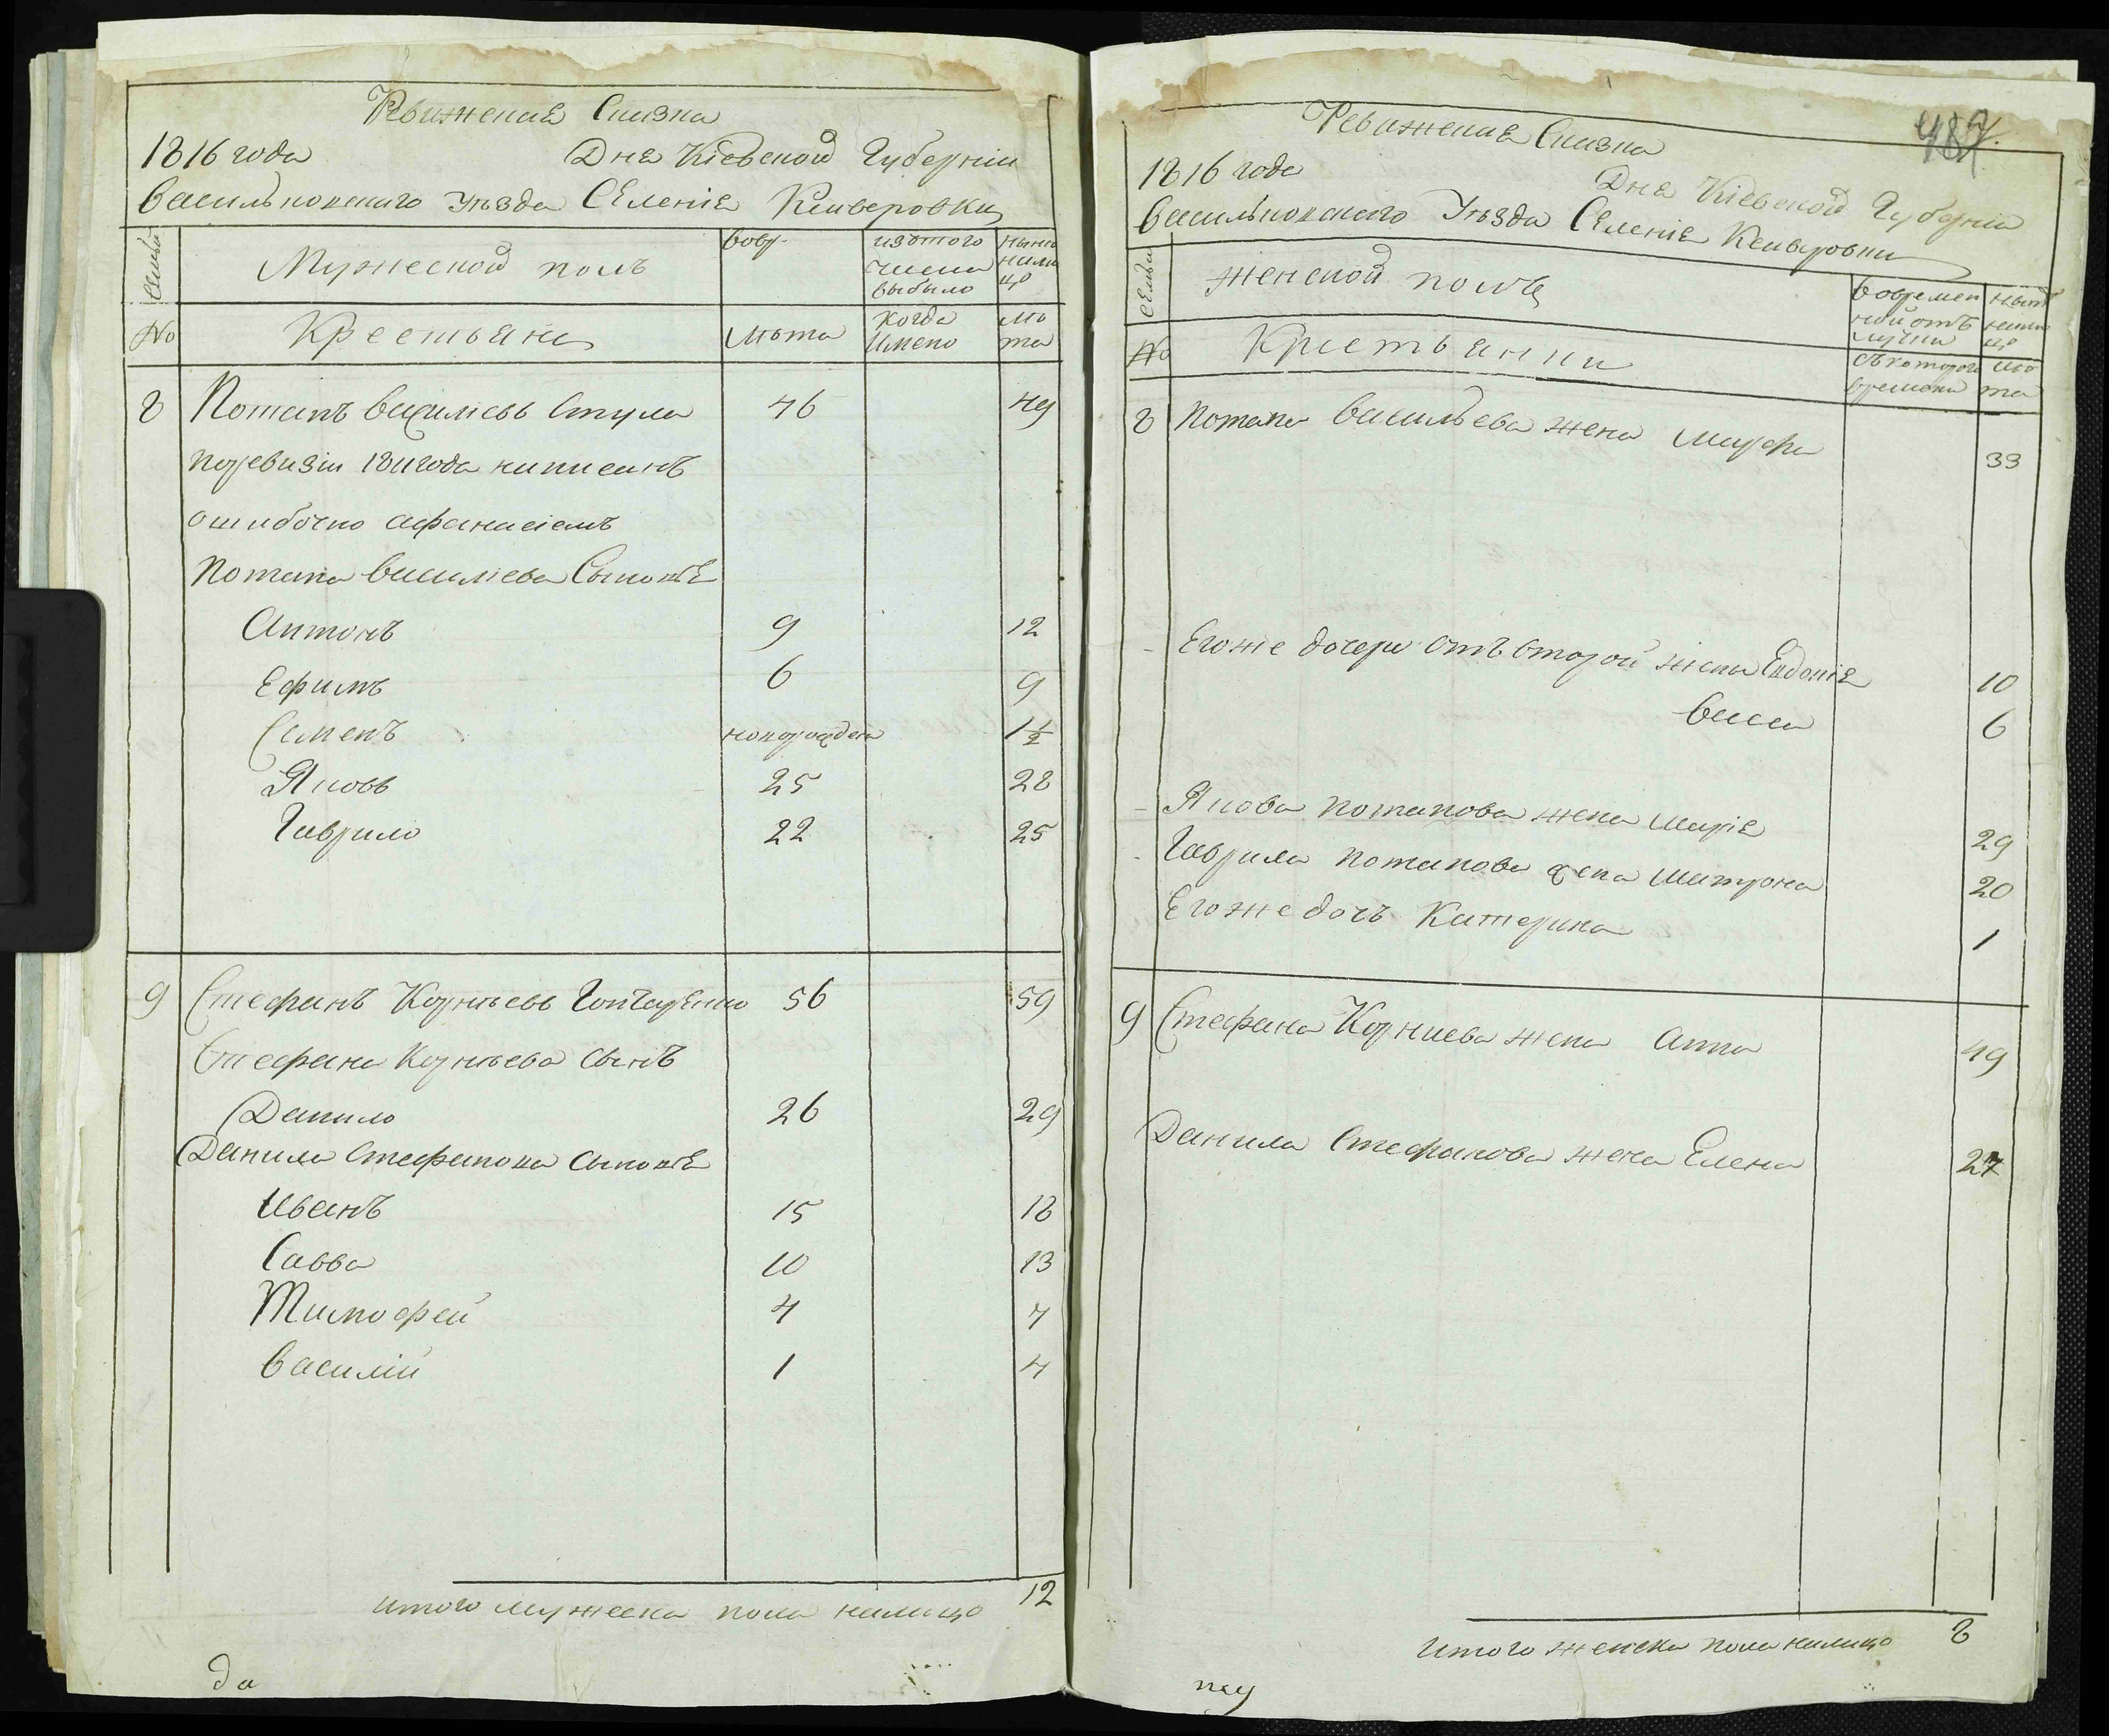 Ревижская Сказка
1816 года Дня Кіевской Губерніи
васильковского Уезда Селенія Кешверовки
Семьи
Мужеской полъ
вовр-
изътого числа выбыло
ныне налицо
No
Крестьяне
лѣта
когда имено
лѣта
8 Потапъ василіевъ Стула 46 49
поревизіи 1811 года написанъ
ошибочно афанасіемъ
Потапа василіева Сыновя
Антонъ 9 12
Ефимъ 6 9
Семенъ новорожден 1½
Яковъ 25 28
Гаврило 22 25
9 Стефанъ Корнѣевъ Гончаренко 56 59
Стефана Корнѣева сынъ
Данило 26 29
Данила Стефанова сыновя
Иванъ 15 18
Савва 10 13
Тимофей 4 7
василій 1 4
итого мужеска пола налицо 12
да
487
Ревижская Сказка
1816 года Дня Кіевской Губерніи
васильковского Уезда Селенія Кешверовки
семьи
женской полъ
вовремен ной отъ лучки
ныне налицо
No
Крестьянки
съкоторого времени
лѣта
8 Потапа васильева жена Марфа 33
- Егоже дочери отъ второй жены Евдокія 10
васса 6
- Якова потапова жена Марія 29
- Гаврила потапова жена Матрона 20
Егоже дочъ Катерина 1
9 Стефана Корниева жена Анна 49
Данила Стефанова жена Елена 27
Итого женска пола налицо 8